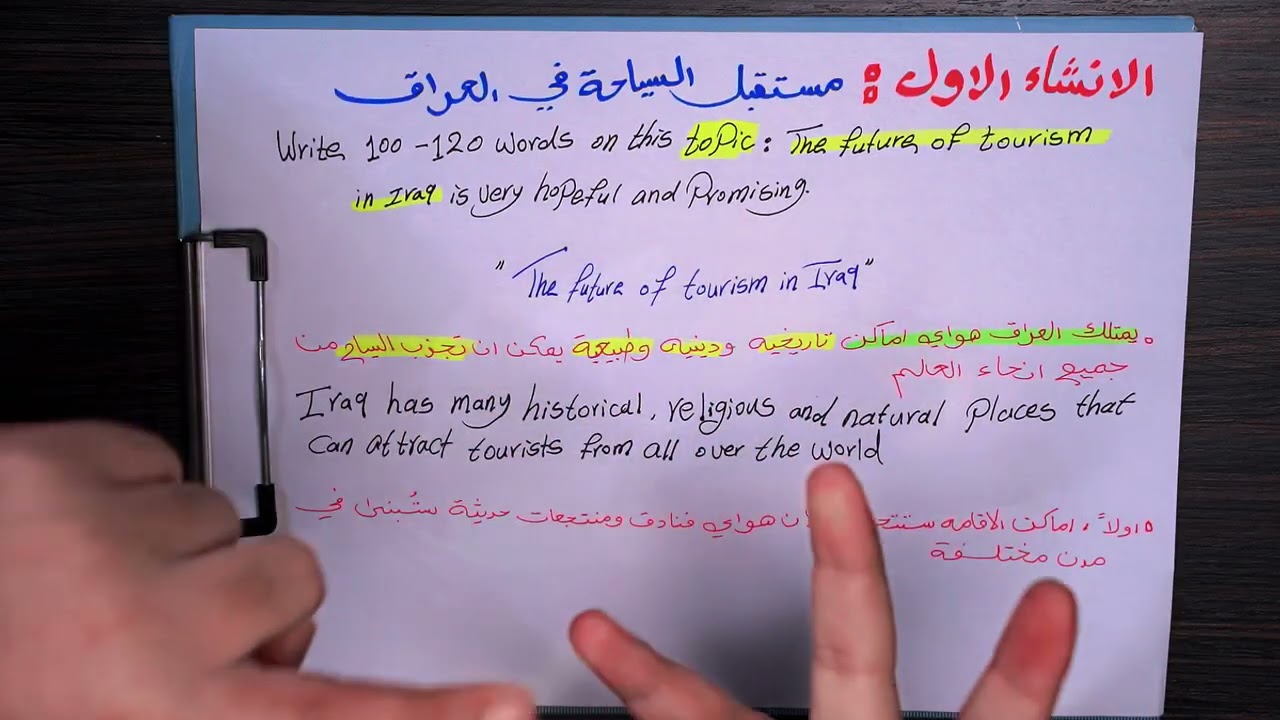 الانشاء الاول : مستقبل السياحة في العراق
Write 100-120 words on this topic: The future of tourism
in Iraq is very hopeful and Promising.
"The future of tourism in Iraq"
يمتلك العراق هواي اماكن تاريخيه ودينيه وطبيعية يمكن ان تجذب السياح من
جميع انحاء العالم
Iraq has many historical, religious and natural Places that
can attract tourists from all over the world
اولاً، اماكن الاقامه ان هواي فنادق ومنتجعات حديثة ستُبنى في
مدن مختلفة